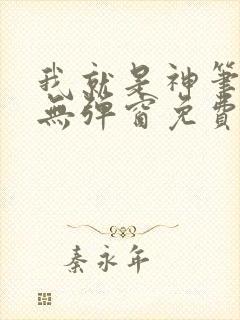 我就是神筆
無彈窗免費
秦永年